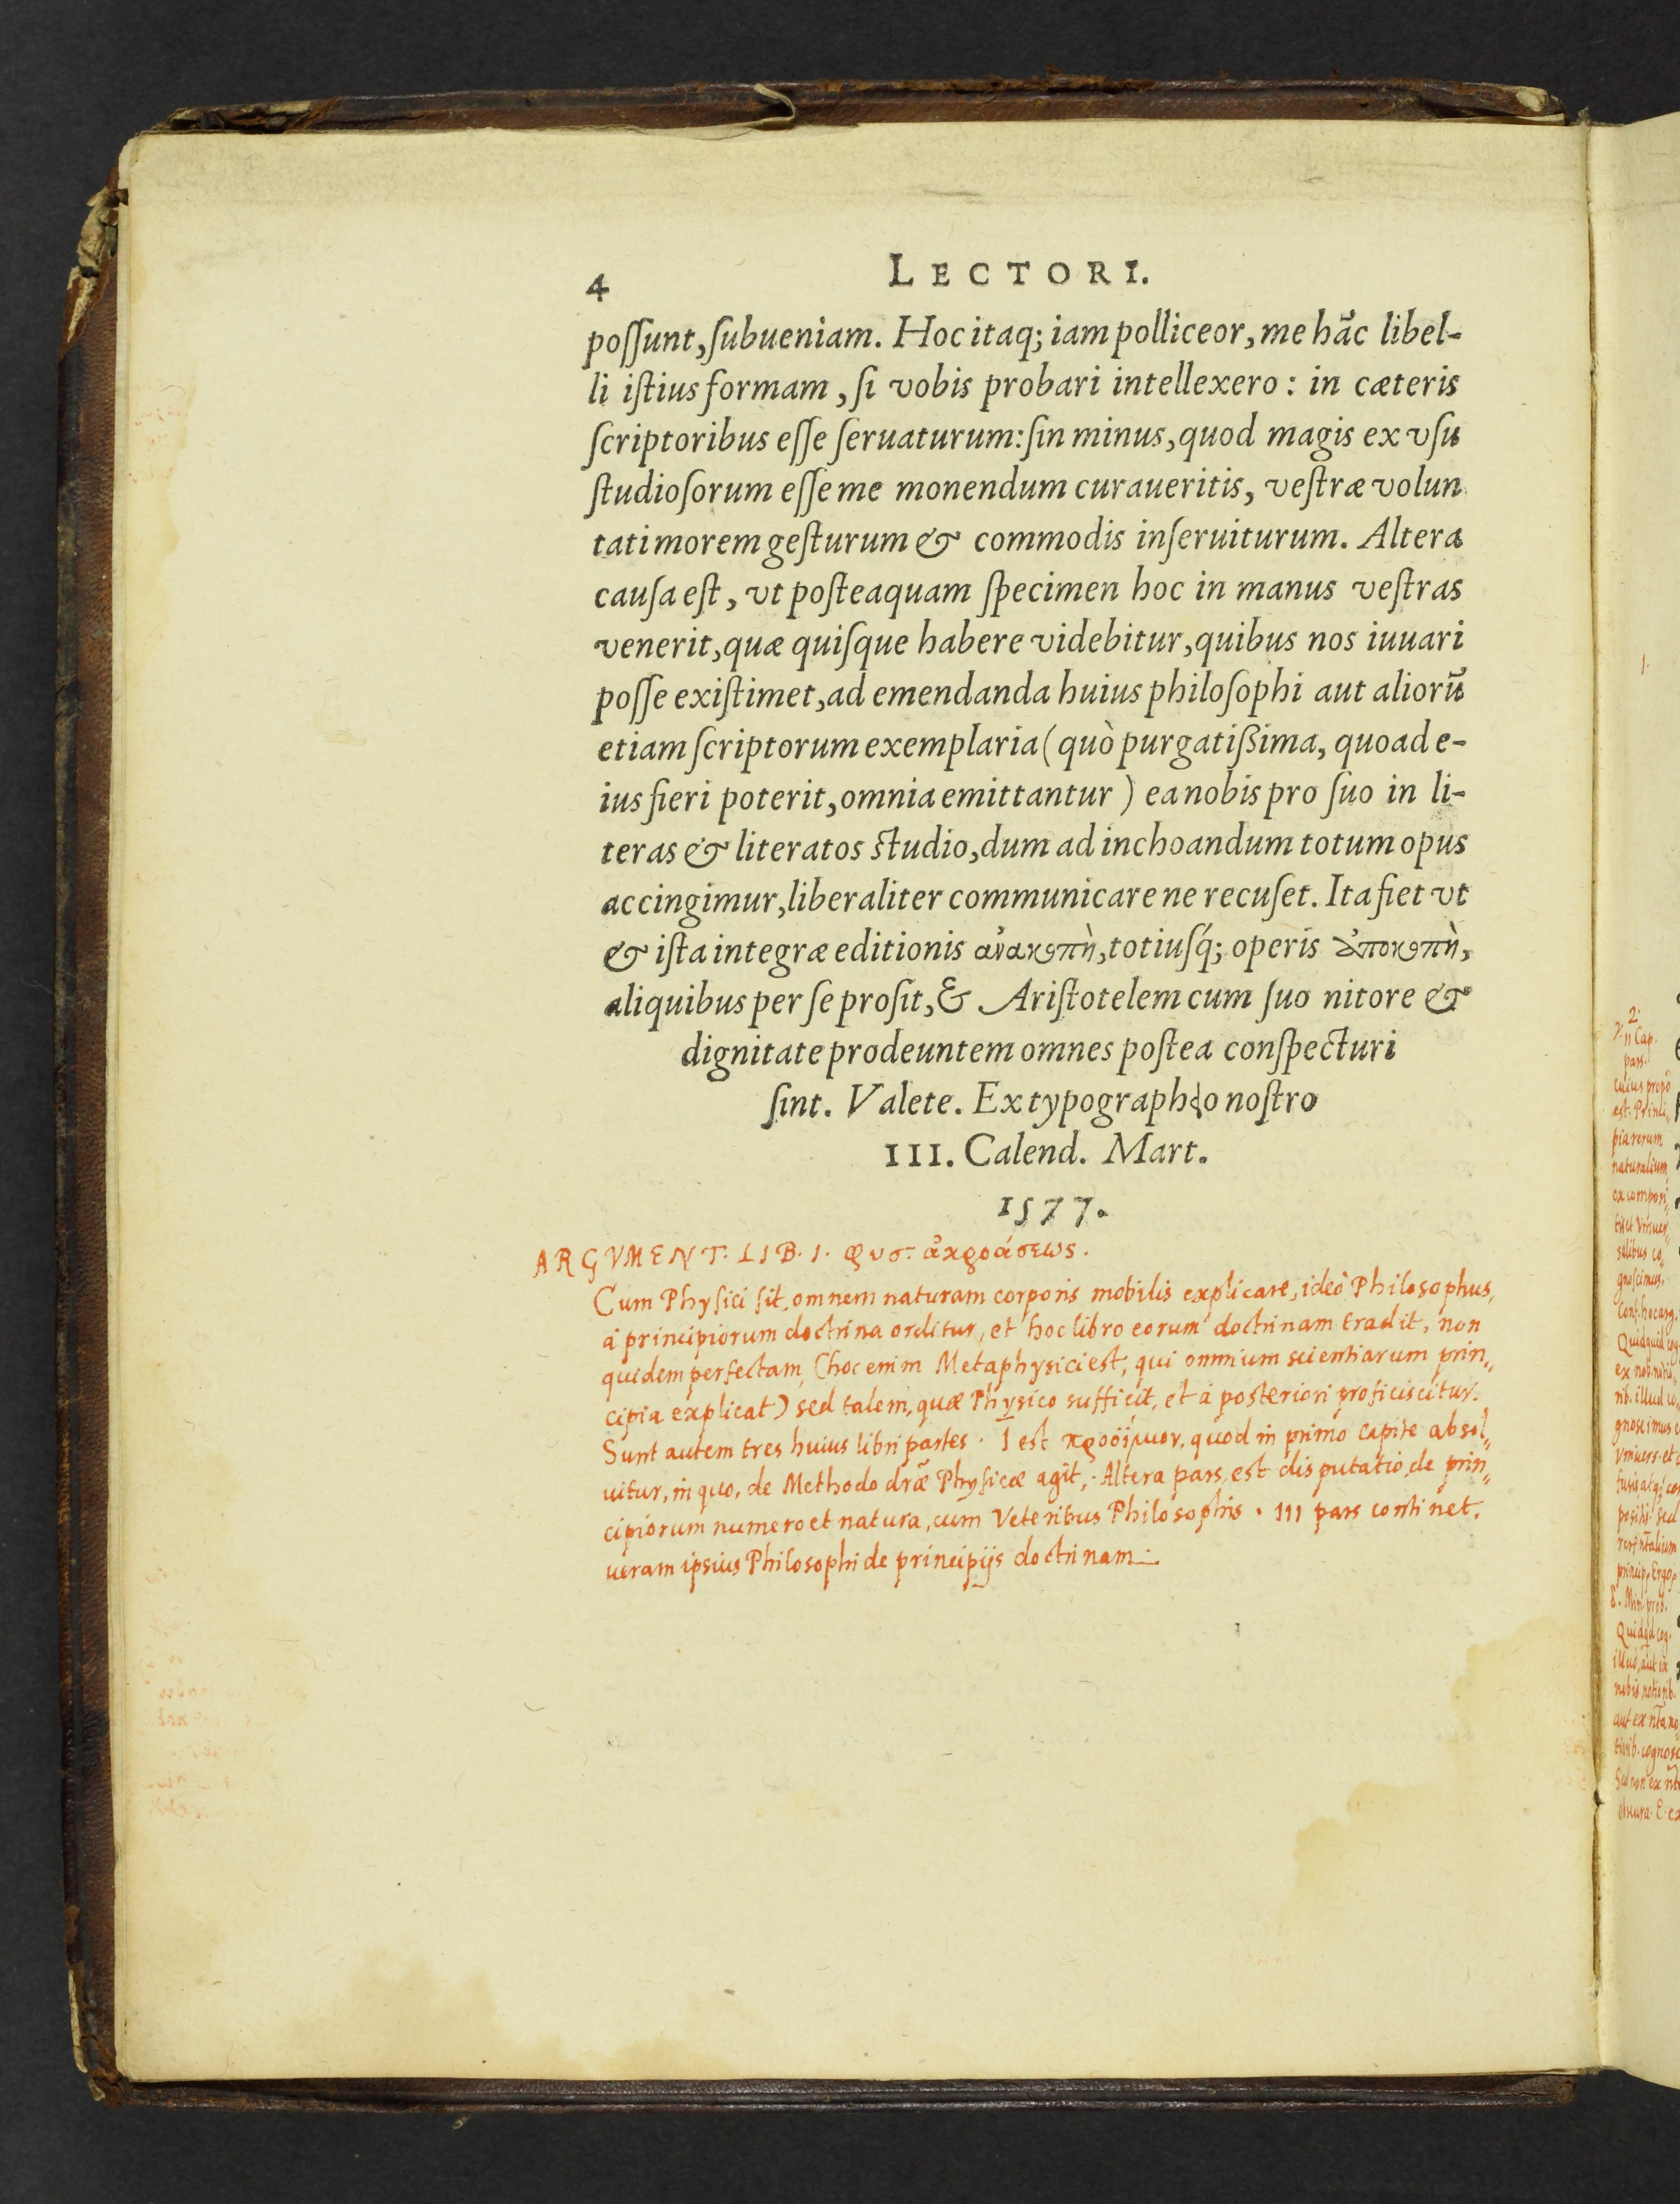 4 LECTORI.
poſſunt, ſubueniam. Hoc itaq; iam polliceor, me hãc libel-
li iſtius formam, ſi vobis probari intellexero: in cæteris
ſcriptoribus eſſe ſeruaturum: ſin minus, quod magis ex vſu
ſtudioſorum eſſe me monendum curaueritis, veſtræ volun
tati morem geſturum & commodis inſeruiturum. Altera
cauſa eſt, vt poſteaquam ſpecimen hoc in manus veſtras
venerit, quæ quiſque habere videbitur, quibus nos iuuari
poſſe exiſtimet, ad emendanda huius philoſophi aut aliorũ
etiam ſcriptorum exemplaria (quò purgatißima, quoad e-
ius fieri poterit, omnia emittantur) ea nobis pro ſuo in li-
teras & literatos ſtudio, dum ad inchoandum totum opus
accingimur, liberaliter communicare ne recuſet. Ita fiet vt
& iſta integræ editionis ἀνακοπὴ, totiuſq́; operis ἀποκοπὴ,
aliquibus per ſe proſit, & Ariſtotelem cum ſuo nitore &
dignitate prodeuntem omnes poſtea conſpecturi
ſint. Valete. Ex typographęo noſtro
III. Calend. Mart.
1577.
ARGVMENT. LIB. 1. φυσ. ἀκροάσεως.
Cum Physici sit, omnem naturam corporis mobilis explicare, ideò Philosophus,
à principiorum doctrina orditur, et hoc libro eorum doctrinam tradit, non
quidem perfectam, (hoc enim Metaphysici est, qui omnium scientiarum prin„
cipia explicat) sed talem, quæ Physico sufficit, et à posteriori proficiscitur.
Sunt autem tres huius libri partes. I est προοίμιον. quod in primo capite absol„
uitur, in quo, de Methodo dræ̃ Physicæ agit,. Altera pars, est disputatio, de prin„
cipiorum numero et natura, cum Veteribus Philosophis. III pars continet.
ueram ipsius Philosophi de principijs doctrinam.
1.
2.
in Cap.
pars.
cuius propo
est. Princi„
pia rerum
naturalium
ex compos„
gnoscimus.
Quidquid cog
gnoscimus
Quidqd cog.
illud, aut ex
nobis notiorib.